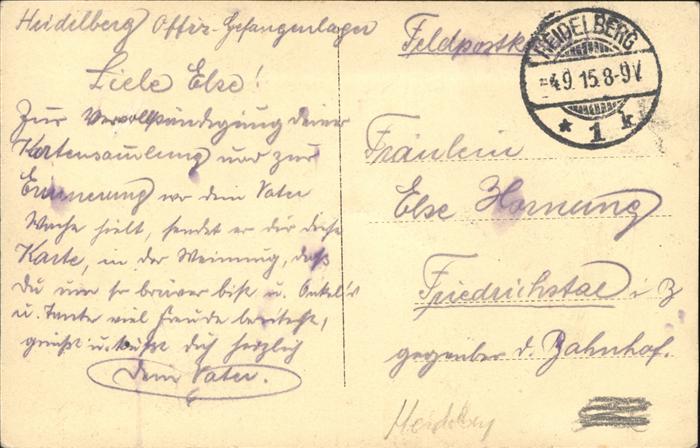 Heidelberg Offiz. Gefangenlager
Liebe Else!
Zur Vervollständigung deiner
Kartensammlung und zur
Erinnerung wo dein Vater
Wache hielt, sendet er dir diese
Karte, in der Meinung, daß
Du um so braver bist u. Onkel's
u. Tante viel Freude bereitest,
grüßt u. küßt dich herzlich
Dein Vater.
Feldpostk
HEIDELBERG
-4.9.15.8-9V.
* 1 k
Fräulein
Else Hornung
Friedrichstal i. B
gegenüber d. Bahnhof.
Heidelberg